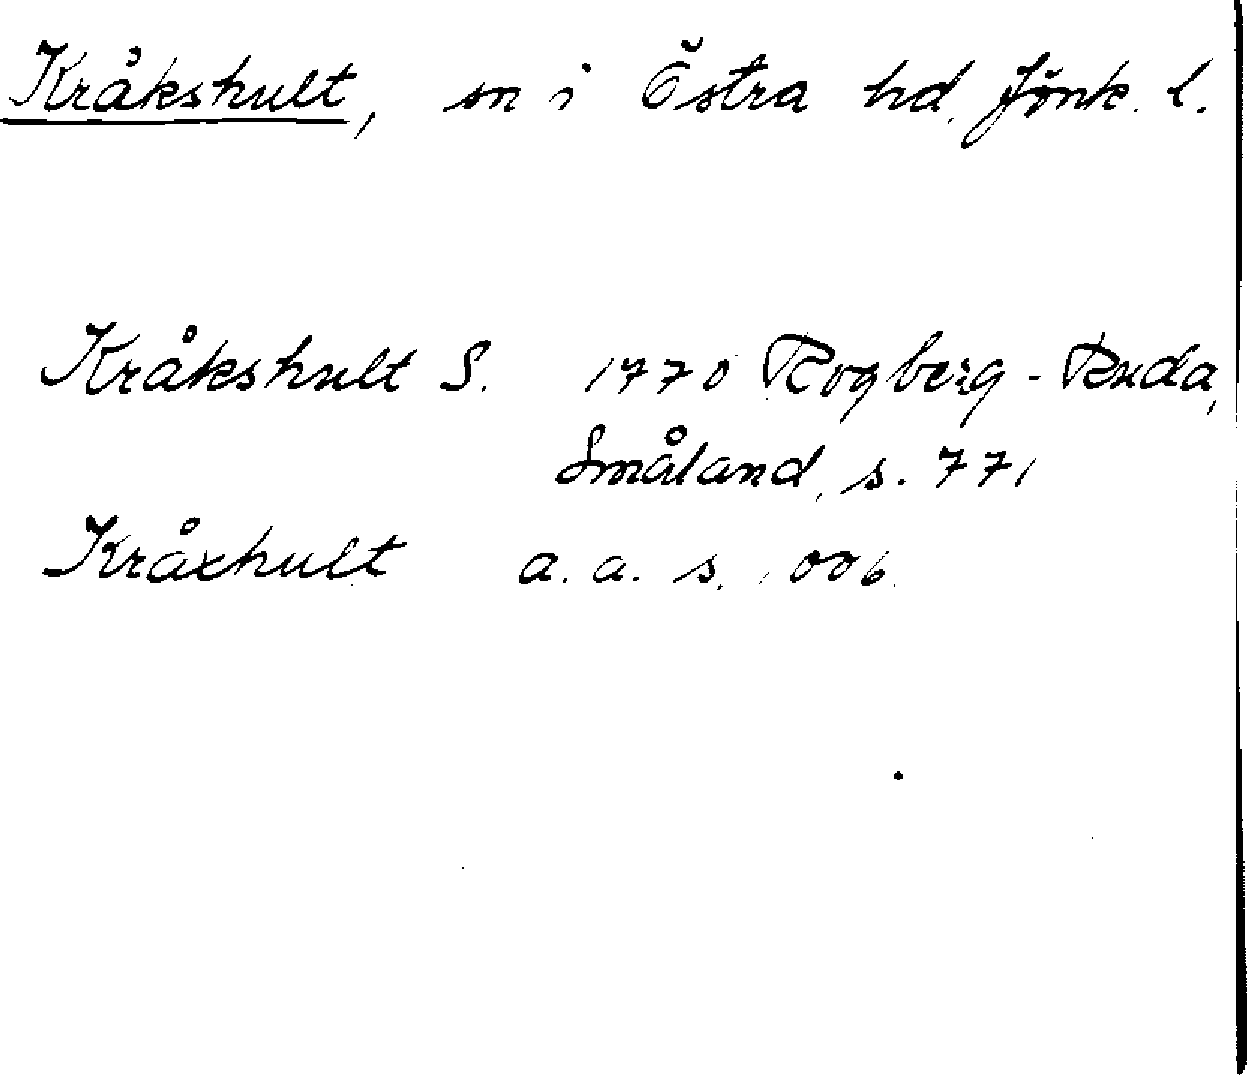 Kråkshult, sn i Östra hd, Jönk. l.
Kråkshult S. 1770 Rogberg-Ruda,
Småland, s. 771
Kråxhult a. a. s. 1006.